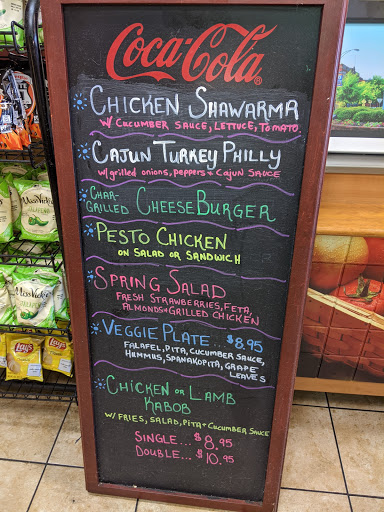 Coca-Cola
CHICKEN SHAWARMA
W/ CUCUMBER SAUCE, LETTUCE, TOMATO
CAJUN TURKEY PHILLY
w/ grilled onions, peppers + CAJUN SAUCE
CHAR-
GRILLED CHEESEBURGER
PESTO CHICKEN
ON SALAD OR SANDWICH
SPRING SALAD
FRESH STRAWBERRIES, FETA,
ALMONDS + GRILLED CHICKEN
VEGGIE PLATE .. $8.95
FALAFEL, PITA, CUCUMBER SAUCE,
HUMMUS, SPANAKOPITA, GRAPE
LEAVES
CHICKEN OR LAMB
KABOB
W/ FRIES, SALAD, PITA + CUCUMBER SAUCE
SINGLE... $8.95
DOUBLE... $10.95
Miss Vickie's
Lay's
Lay's